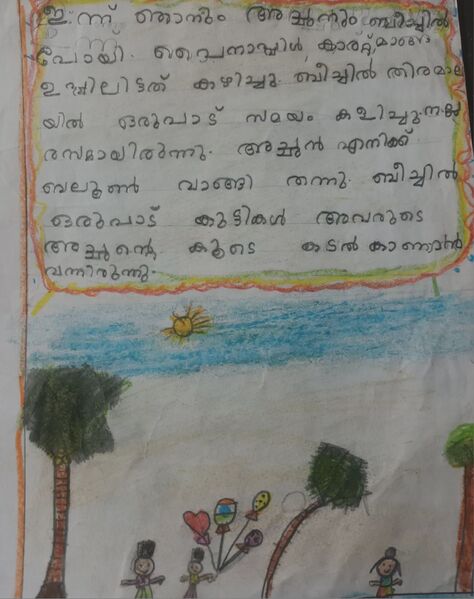 ഇന്ന് ഞാനും അച്ഛനും ബീച്ചിൽ
പോയി. പൈനാപ്പിൾ, കാരറ്റ്, മാങ്ങ
ഉപ്പിലിട്ടത് കഴിച്ചു. ബീച്ചിൽ തിരമാല
യിൽ ഒരുപാട് സമയം കളിച്ചു. നല്ല
രസമായിരുന്നു. അച്ഛൻ എനിക്ക്
ബലൂൺ വാങ്ങി തന്നു. ബീച്ചിൽ
ഒരുപാട് കുട്ടികൾ അവരുടെ
അച്ഛന്റെ കൂടെ കടൽ കാണാൻ
വന്നിരുന്നു.